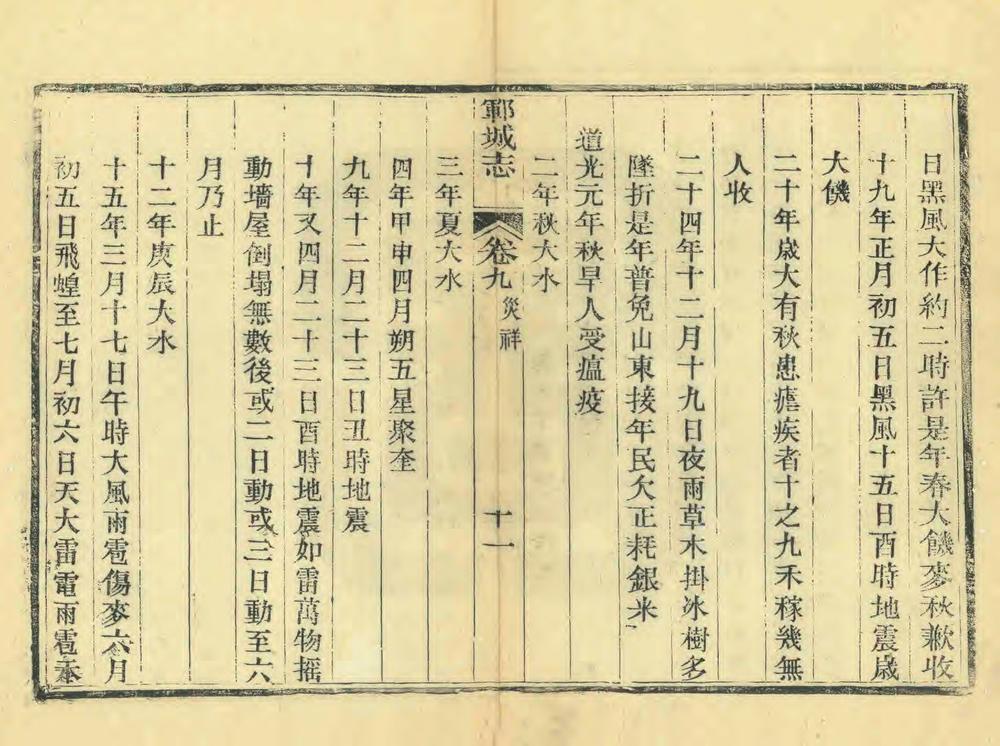 日黑風大作約二時許是年春大饑麥秋歉收
十九年正月初五日黑風十五日酉時地震歲
大饑
二十年歲大有秋患瘧疾者十之九禾稼幾無
人收
二十四年十二月十九日夜雨草木掛冰樹多
墜折是年普免山東接年民欠正耗銀米
道光元年秋旱人受瘟疫
二年秋大水
鄆城志 卷九 災祥 十一
三年夏大水
四年甲申四月朔五星聚奎
九年十二月二十三日丑時地震
十年又四月二十三日酉時地震如雷萬物摇
動墻屋倒塌無數後或二日動或三日動至六
月乃止
十二年庚辰大水
十五年三月十七日午時大風雨雹傷麥六月
初五日飛蝗至七月初六日天大雷電雨雹